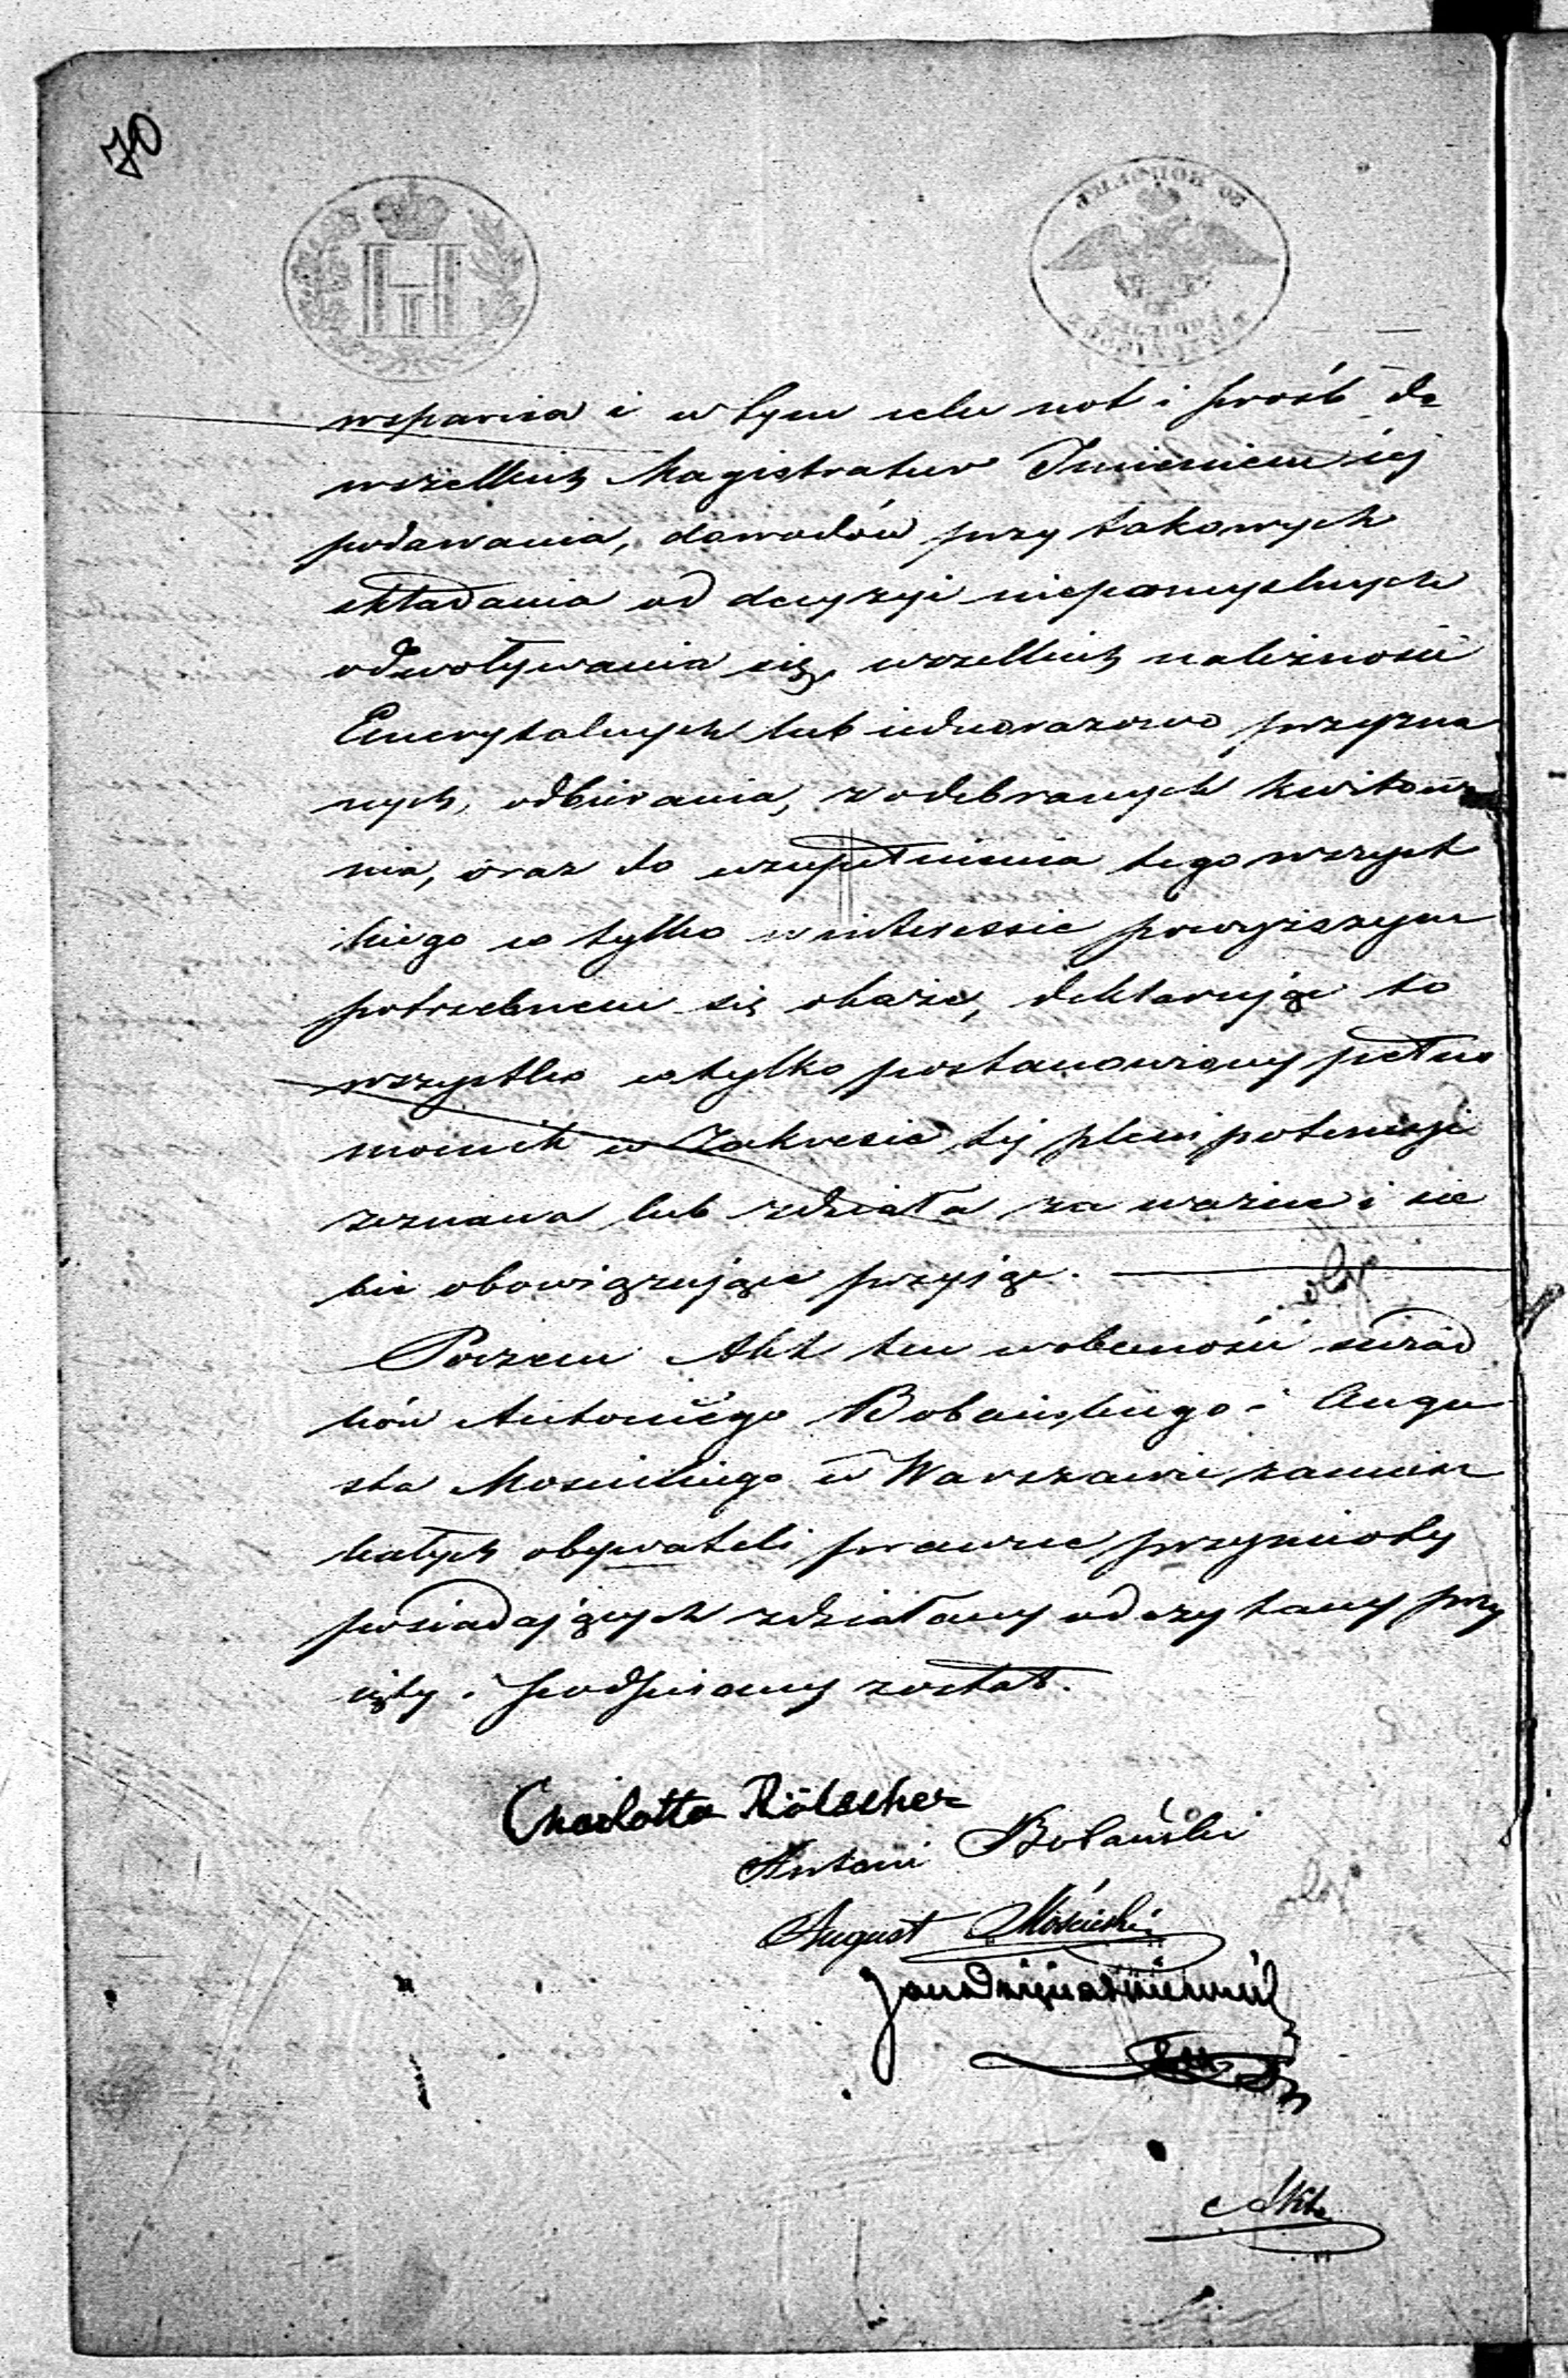 70
Н
wsparcia i w tym celu not i próśb do
wszelkich Magistratur Imieniem jej
podawania, dowodów przy takowych
składania od decyzyi niepomyślnych
odwoływania się, wszelkich należności
Emerytalnych lub jednorazowo przyzna
nych, odbierania, z odebranych kwitowa
nia, oraz do uzupełnienia tego wszyst
kiego co tylko w interessie powyższym
potrzebnem się okaże, deklarując to
wszystko co tylko postanowiony pełno
mocnik w Zakresie tej plenipotencyi
zeznawa lub zdziała za ważne i sie
bie obowiązujące przyjąć.
Poczem Akt ten w obecności świad
ków Antoniego Bobańskiego i Augu
sta Mościckiego w Warszawie zamiesz
kałych obywateli prawne przymioty
posiadających zdziałany odczytany przy
jęty i podpisany został.
Charlotta Rölscher
Antoni Bobański
August Mościcki
Jan
Akt